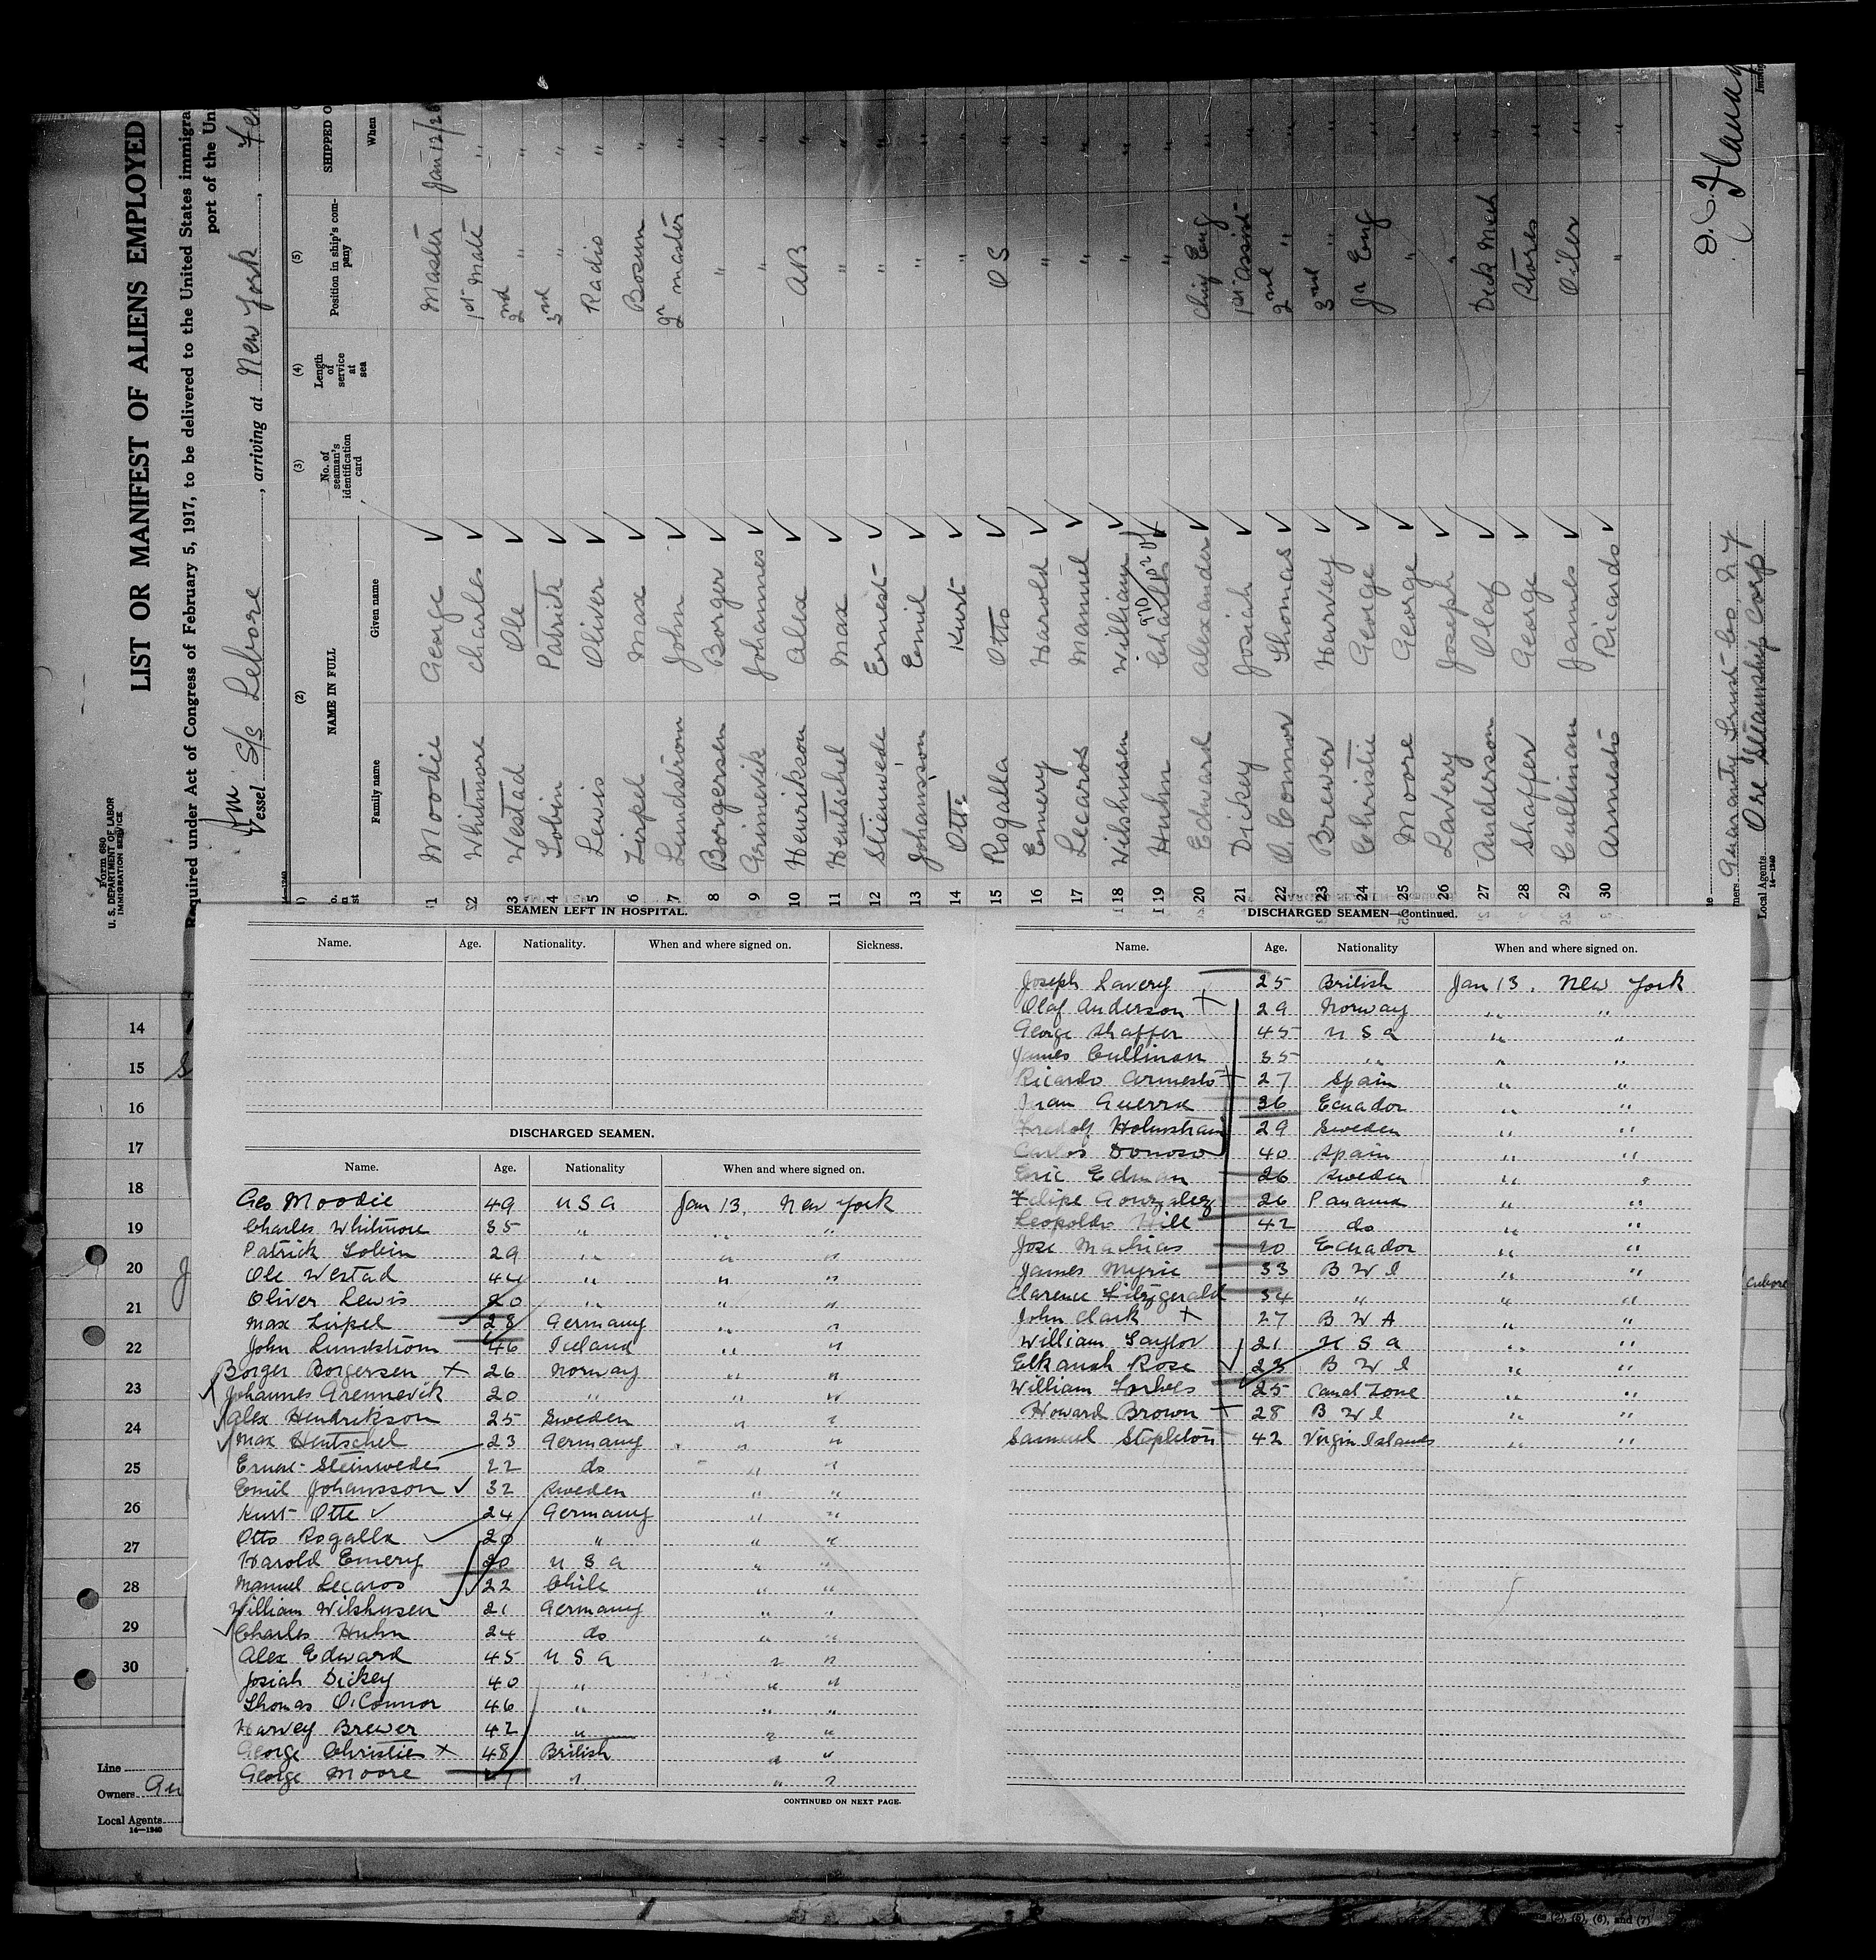 Form 680
U. S. DEPARTMENT OF LABOR
IMMIGRATION SERVICE
LIST OR MANIFEST OF ALIENS EMPLOYED
Required under Act of Congress of February 5, 1917, to be delivered to the United States immigra
port of the Un
Am
Vessel S/S Lebore, arriving at New York,
(2) (3) (4) (5)
NAME IN FULL No. of seaman's identification card Length of service at sea Position in ship's company SHIPPED O
Family name Given name When
1 Moodie George Master Jan 12/26
2 Whitmore Charles 1st Mate "
3 Westad Ole 2nd " "
4 Tobin Patrick 3rd " "
5 Lewis Oliver Radio "
6 Lispel Max Bosun "
7 Lundstrom John Qr master "
8 Borgersen Borger " "
9 Grennevik Johannes " "
10 Henrikson Alex AB "
11 Hentschel Max " "
12 Steinwede Ernest " "
13 Johansson Emil " "
14 Otte Kurt " "
15 Rogalla Otto O S "
16 Emery Harold " "
17 Lecaros Manuel " "
18 Wilshusen William " "
19 Huhn Charles " "
20 Edward Alexander Chief Eng "
21 Dickey Josiah 1st Assist "
22 O'Connor Thomas 2nd " "
23 Brewer Harvey 3rd " "
24 Christie George Jr Eng "
25 Moore George " "
26 Lavery Joseph " "
27 Anderson Olaf Deck Mech "
28 Shaffer George Stores "
29 Cullinan James Oiler "
30 Armesto Ricardo " "
Guaranty Trust Co. N Y
Local Agents Ore Steamship Corp
14—1240
SEAMEN LEFT IN HOSPITAL.
Name. Age. Nationality. When and where signed on. Sickness.
DISCHARGED SEAMEN.
Name. Age. Nationality When and where signed on.
Geo Moodie 49 U S A Jan 13, New York
Charles Whitmore 35 " " "
Patrick Tobin 29 " " "
Ole Westad 44 " " "
Oliver Lewis 20 " " "
Max Lispel 28 Germany " "
John Lundstrom 46 Iceland " "
Borger Borgersen × 26 Norway " "
Johannes Grennevik 20 " " "
Alex Hendrikson 25 Sweden " "
Max Hentschel 23 Germany " "
Ernest Steinwede 22 do " "
Emil Johansson ✓ 32 Sweden " "
Kurt Otte ✓ 24 Germany " "
Otto Rogalla 20 " " "
Harold Emery 20 U S A " "
Manuel Lecaros 22 Chile " "
William Wilshusen 21 Germany " "
Charles Huhn 24 do " "
Alex Edward 45 U S A " "
Josiah Dickey 40 " " "
Thomas O'Connor 46 " " "
Harvey Brewer 42 " " "
George Christie × 48 British " "
George Moore " " "
CONTINUED ON NEXT PAGE.
DISCHARGED SEAMEN—Continued.
Name. Age. Nationality When and where signed on.
Joseph Lavery 25 British Jan 13, New York
Olaf Anderson + 29 Norway " "
George Shaffer 45 U S A " "
James Cullinan 35 " " "
Ricardo Armesto + 27 Spain " "
Juan Guerra 36 Ecuador " "
Fredolf 29 Sweden " "
Carlos Donoso 40 Spain " "
Eric Edman 26 Sweden " "
Felipe Gonzalez 26 Panama " "
Leopoldo Hill 42 do " "
Jose Machias Ecuador " "
James Myrie 33 B W I " "
Clarence Fitzgerald 34 " " "
John Clark × 27 B W A " "
William Taylor 21 U S A " "
Elkanah Rose 23 B W I " "
William Forbes 25 Canal Zone " "
Howard Brown + 28 B W I " "
Samuel Stapleton 42 Virgin Islands " "
14
15
16
17
18
19
20
21
22
23
24
25
26
27
28
29
30
Line
Owners Gu
Local Agents
14—1240